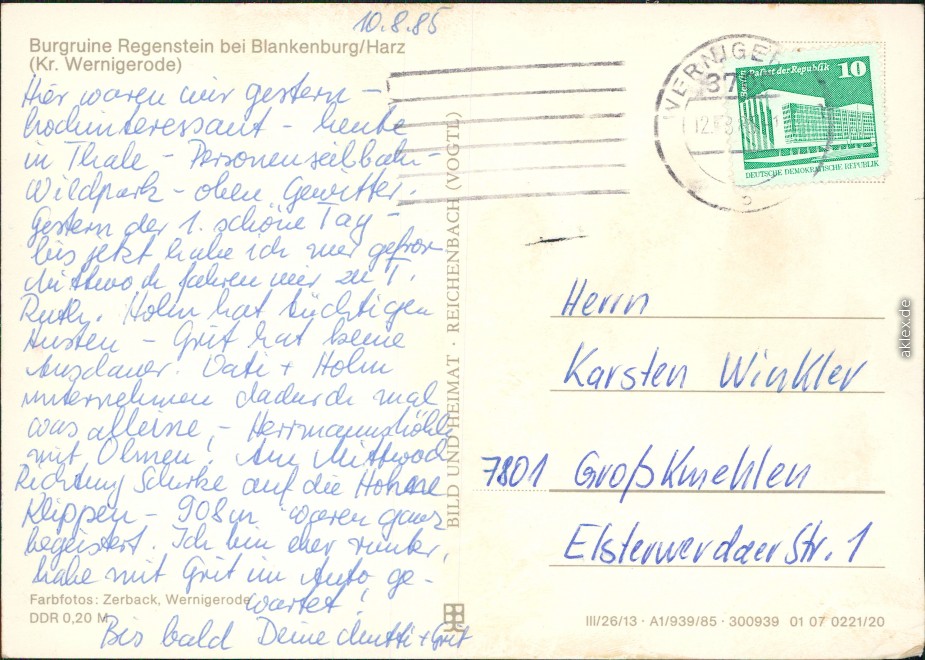 10.8.85
Burgruine Regenstein bei Blankenburg/Harz
(Kr. Wernigerode)
Hier waren wir gestern –
hochinteressant – heute
in Thale – Personenseilbahn –
Wildpark – oben Gewitter.
Gestern der 1. schöne Tag –
bis jetzt habe ich nur gefror
Mittwoch fahren wir zu T.
Ruth. Holm hat tüchtigen
Husten – Grit hat keine
Ausdauer. Vati + Holm
unternehmen dadurch mal
was alleine, – Herrmannshöhle
mit Olmen! Am Mittwoch
Richtung Schirke auf die Hohne
Klippen – 908 m waren ganz
begeistert. Ich bin eher runter,
habe mit Grit im Auto ge-
wartet!
Bis bald Deine Mutti + Grit
Farbfotos: Zerback, Wernigerode
DDR 0,20 M
BILD UND HEIMAT · REICHENBACH (VOGTL)
WERNIGER
37
Berlin Palast der Republik 10
DEUTSCHE DEMOKRATISCHE REPUBLIK
b
Herrn
Karsten Winkler
7801 Großkmehlen
Elsterwerdaer Str. 1
III/26/13 · A1/939/85 · 300939 01 07 0221/20
aklex.de